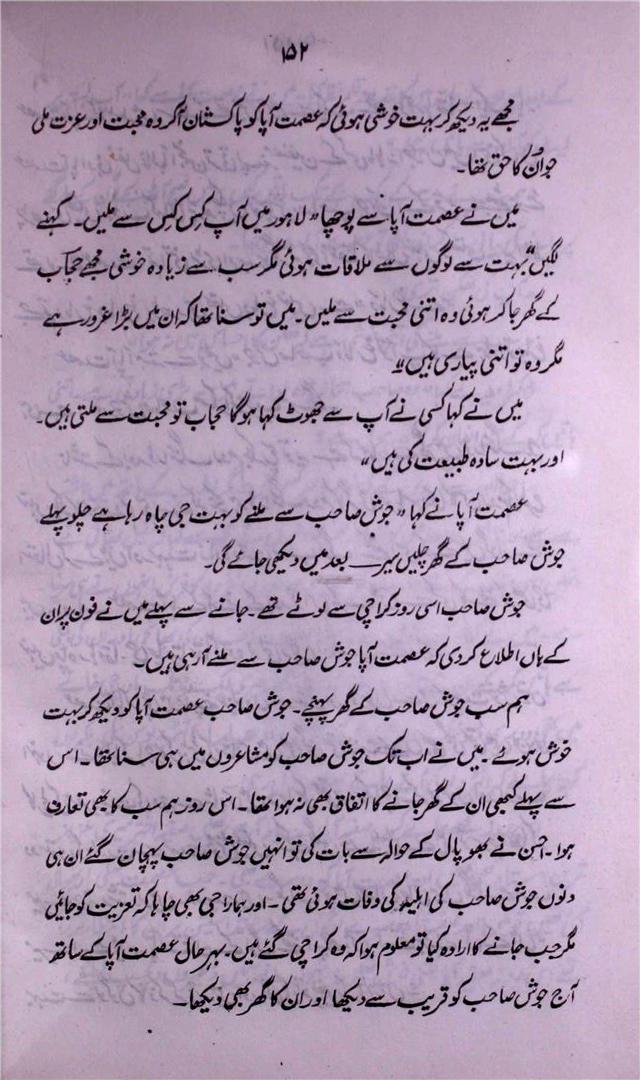 ۱۵۲
مجھے یہ دیکھ کر بہت خوشی ہوئی کہ عصمت آپا کو پاکستان آکر وہ محبت اور عزت ملی
جو اُن کا حق تھا۔
میں نے عصمت آپا سے پوچھا "لاہور میں آپ کِس کِس سے ملیں۔ کہنے
لگیں "بہت سے لوگوں سے ملاقات ہوئی مگر سب سے زیادہ خوشی مجھے حجاب
کے گھر جا کر ہوئی وہ اتنی محبت سے ملیں۔ میں تو سنا تھا کہ ان میں بڑا غرور ہے
مگر وہ تو اتنی پیاری ہیں"
میں نے کہا کسی نے آپ سے جھوٹ کہا ہوگا حجاب تو محبت سے ملتی ہیں۔
اور بہت سادہ طبیعت کی ہیں"
عصمت آپا نے کہا "جوش صاحب سے ملنے کو بہت جی چاہ رہا ہے چلو پہلے
جوش صاحب کے گھر چلیں سیر — بعد میں دیکھی جائے گی۔
جوش صاحب اسی روز کراچی سے لوٹے تھے۔ جانے سے پہلے میں نے فون پر ان
کے ہاں اطلاع کر دی کہ عصمت آپا جوش صاحب سے ملنے آ رہی ہیں۔
ہم سب جوش صاحب کے گھر پہنچے۔ جوش صاحب عصمت آپا کو دیکھ کر بہت
خوش ہوئے۔ میں نے اب تک جوش صاحب کو مشاعروں میں ہی سنا تھا۔ اس
سے پہلے کبھی ان کے گھر جانے کا اتفاق بھی نہ ہوا تھا۔ اس روز ہم سب کا بھی تعارف
ہوا۔ احسن نے بھوپال کے حوالہ سے بات کی تو انہیں جوش صاحب پہچان گئے ان ہی
دنوں جوش صاحب کی اہلیہ کی وفات ہوئی تھی۔ اور ہمارا جی بھی چاہا کہ تعزیت کو جائیں
مگر جب جانے کا ارادہ کیا تو معلوم ہوا کہ وہ کراچی گئے ہیں۔ بہر حال عصمت آپا کے ساتھ
آج جوش صاحب کو قریب سے دیکھا اور ان کا گھر بھی دیکھا۔